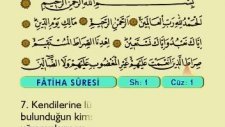 بِسْمِ اللّٰهِ الرَّحْمٰنِ الرَّحِيمِ
اَلْحَمْدُ لِلّٰهِ رَبِّ الْعَالَمِينَ الرَّحْمٰنِ الرَّحِيمِ مَالِكِ يَوْمِ الدِّينِ
اِيَّاكَ نَعْبُدُ وَاِيَّاكَ نَسْتَعِينُ اِهْدِنَا الصِّرَاطَ الْمُسْتَقِيمَ
صِرَاطَ الَّذِينَ اَنْعَمْتَ عَلَيْهِمْ غَيْرِ الْمَغْضُوبِ عَلَيْهِمْ وَلَا الضَّالِّينَ
FÂTİHA SÛRESİ Sh: 1 Cüz: 1
7. Kendilerine lü
bulunduğun kim